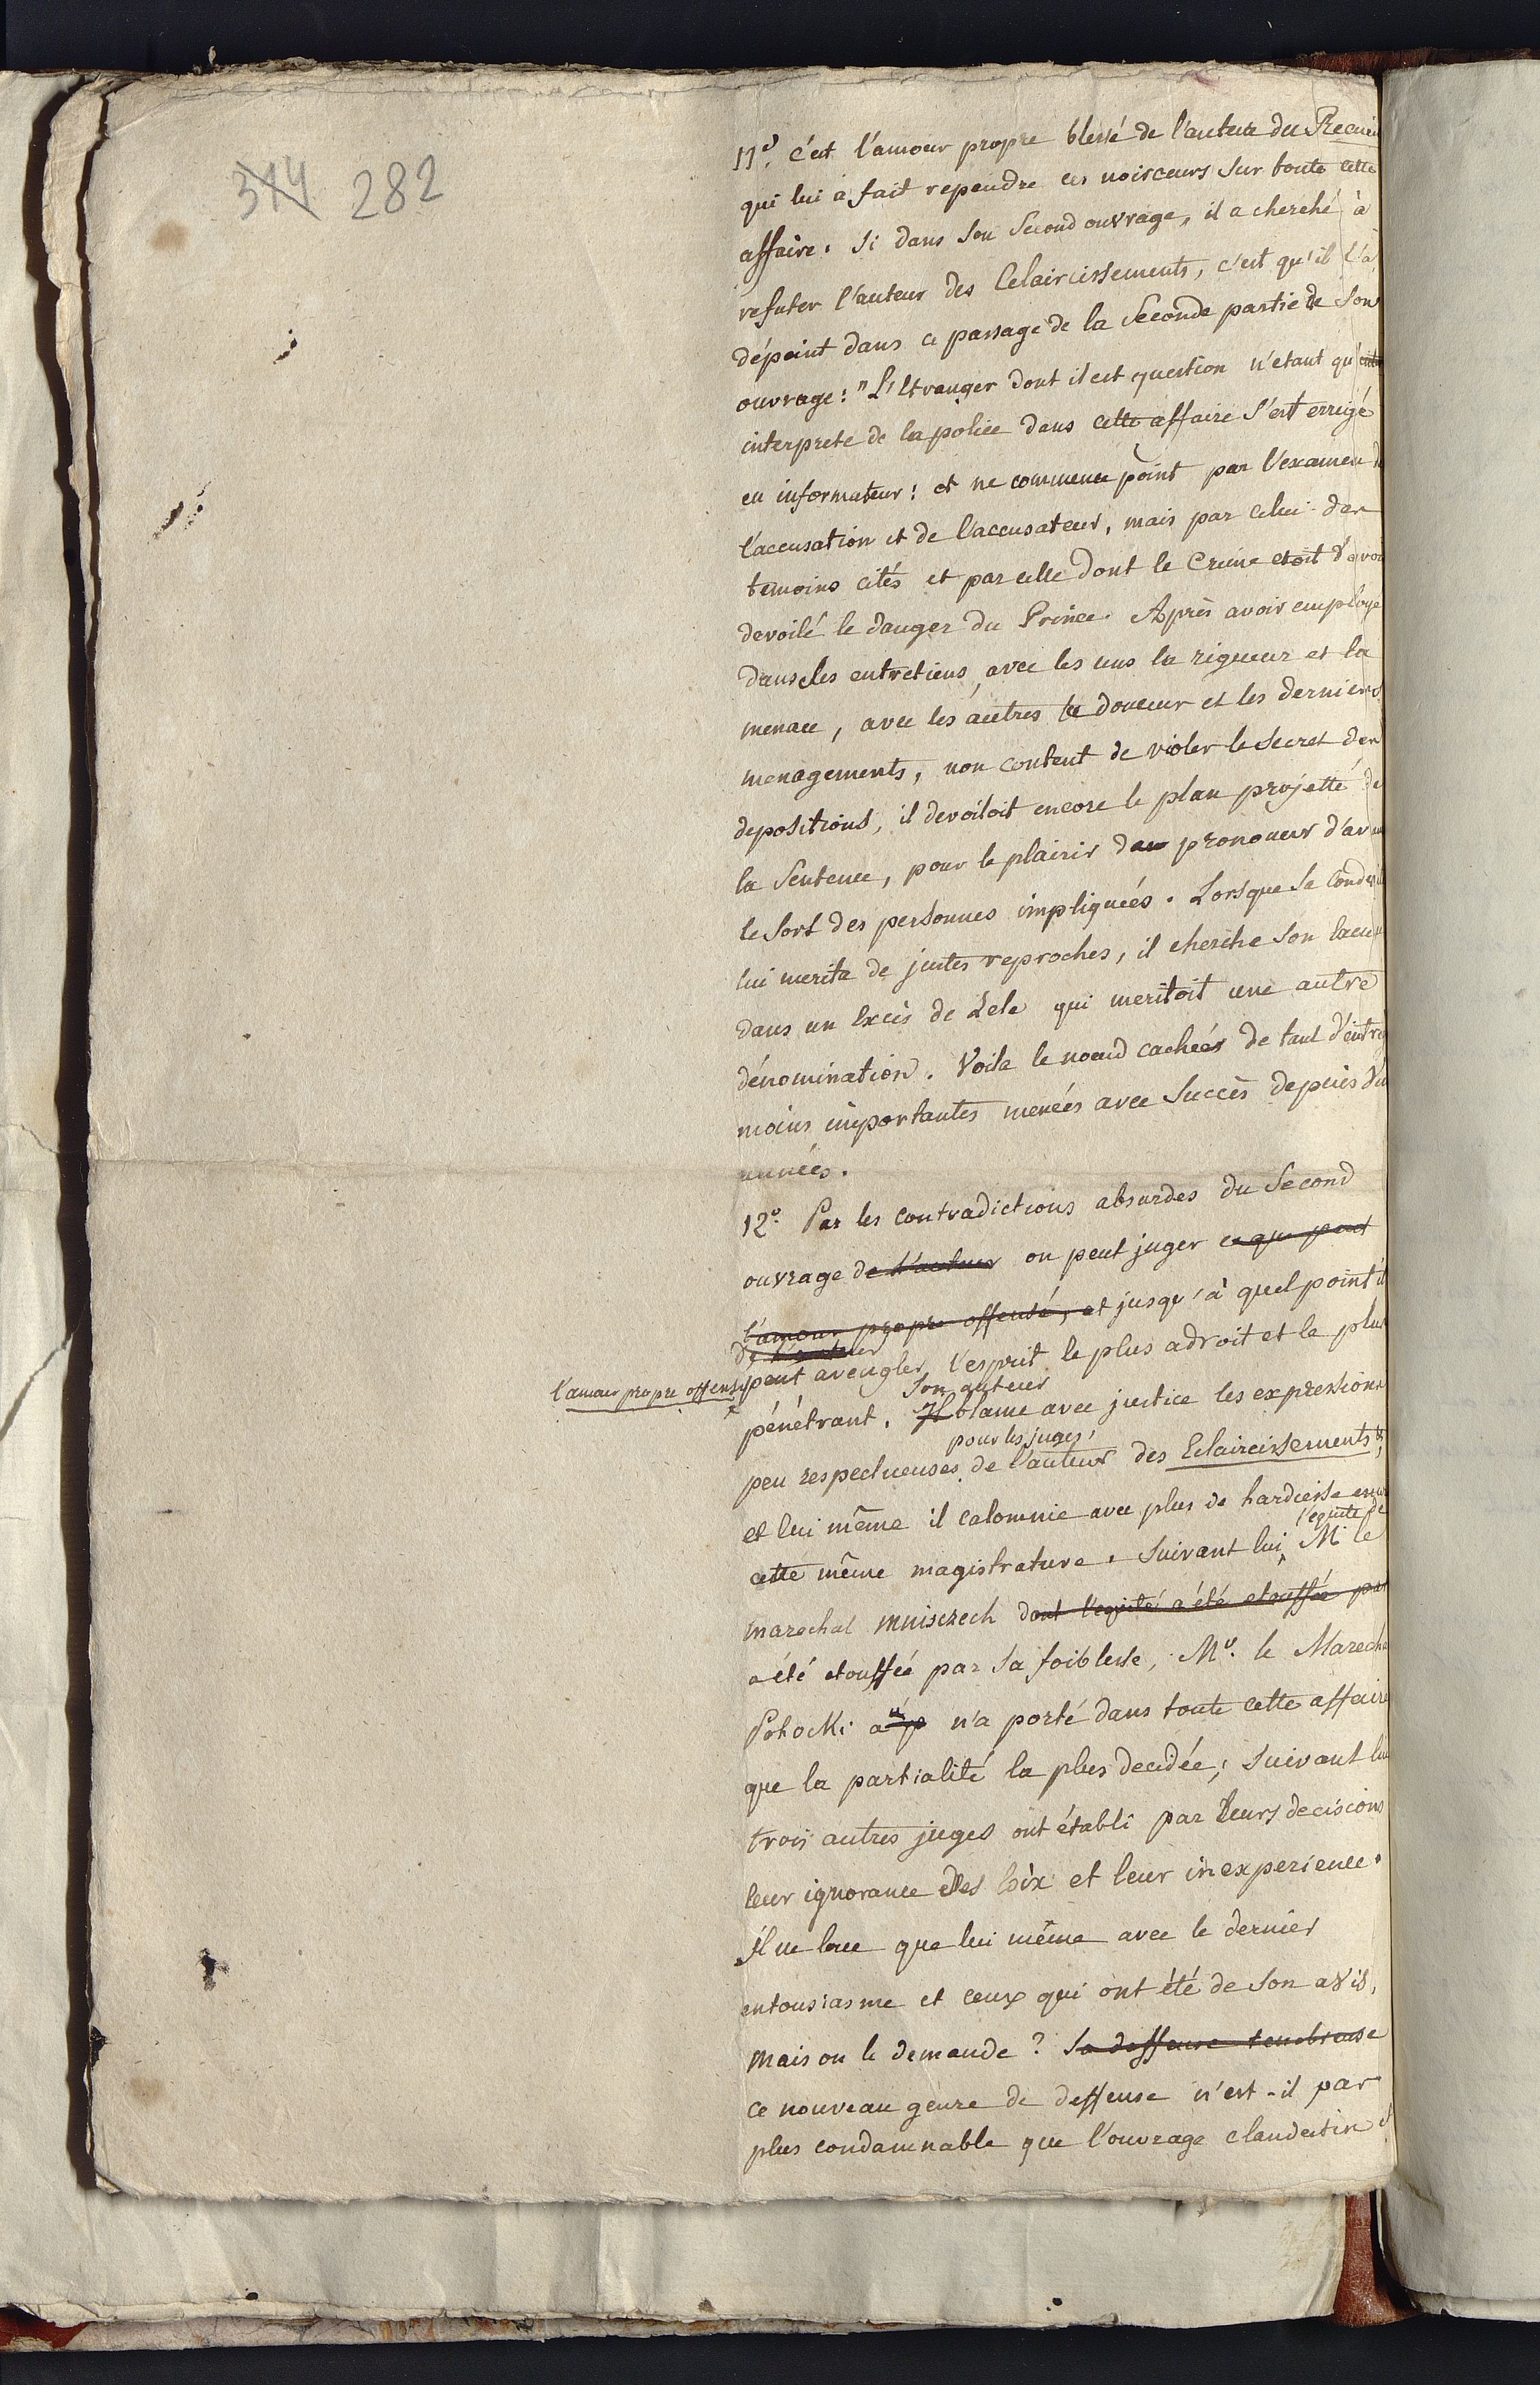 314 282
11º. c'est l'amour propre blessé de l'auteur du Recueil
qui lui a fait rependre ces noirceurs sur toute cette
affaire. Si dans son second ouvrage, il a cherché à
refuter l'auteur des Eclaircissements, c'est qu'il l'a
dépeint dans ce passage de la Seconde partie de son
ouvrage: "L'Etranger dont il est question n'etant qu'
interprete de la police dans cette affaire s'est errigé
en informateur: et ne commence point par l'examen de
l'accusation et de l'accusateur, mais par celui des
temoins cités et par celle dont le Crime etoit d'avoir
devoilé le danger du Prince. Après avoir employé
dans les entretiens, avec les uns la rigueur et la
menace, avec les autres la douceur et les derniers
menagements, non content de violer le secret des
depositions, il devoiloit encore le plan projetté de
la Sentence, pour le plaisir de prononcer d'avance
le sort des personnes impliqueés. Lorsque sa conduite
lui merita de justes reproches, il cherche son
dans un Excès de Zele qui meritoit une autre
dénomination. Voila le noeud cacheés de tant d'
moins importantes meneés avec Succès depuis
anneés.
12º. Par les contradictions absurdes du Second
ouvrage de l'auteur on peut juger ce que peut
l'amour propre offensé, et jusqu'à quel point
de l'auteur
l'amour propre offensé peut aveugler l'esprit le plus adroit et le plus
Son auteur
pénétrant. Il blame avec justice les expressions
pour les juges,
peu respectueuses de l'auteur des Eclaircissements &,
et lui même il calomnie avec plus de hardiesse encore
l'equité de
cette même magistrature. Suivant lui, Mr le
marechal mniszech dont l'equité a été etouffée par
a été etouffée par sa foiblesse, Mr. le Marechal
Potocki a n'a porté dans toute cette affaire
que la partialité la plus decidée; Suivant lui
trois autres juges ont établi par leurs decisions
leur ignorance des loix et leur inexperience.
Il ne loue que lui même avec le dernier
entousiasme et ceux qui ont été de son avis,
mais on le demande? Sa deffense tenebreuse
ce nouveau genre de deffense n'est-il pas
plus condamnable que l'ouvrage clandestin et